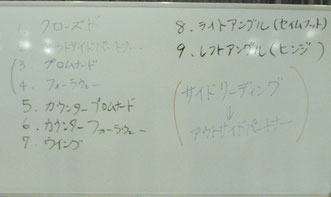 1. クローズド
2. アウトサイドパートナー
(3 プロムナード
4. フォーラウェー
5. カウンタープロムナード
6. カウンターフォーラウェー
7. ウイング
8. ライトアングル(セイムフット)
9. レフトアングル(ヒンジ)
(サイドリーディング
↓
アウトサイドパートナー)